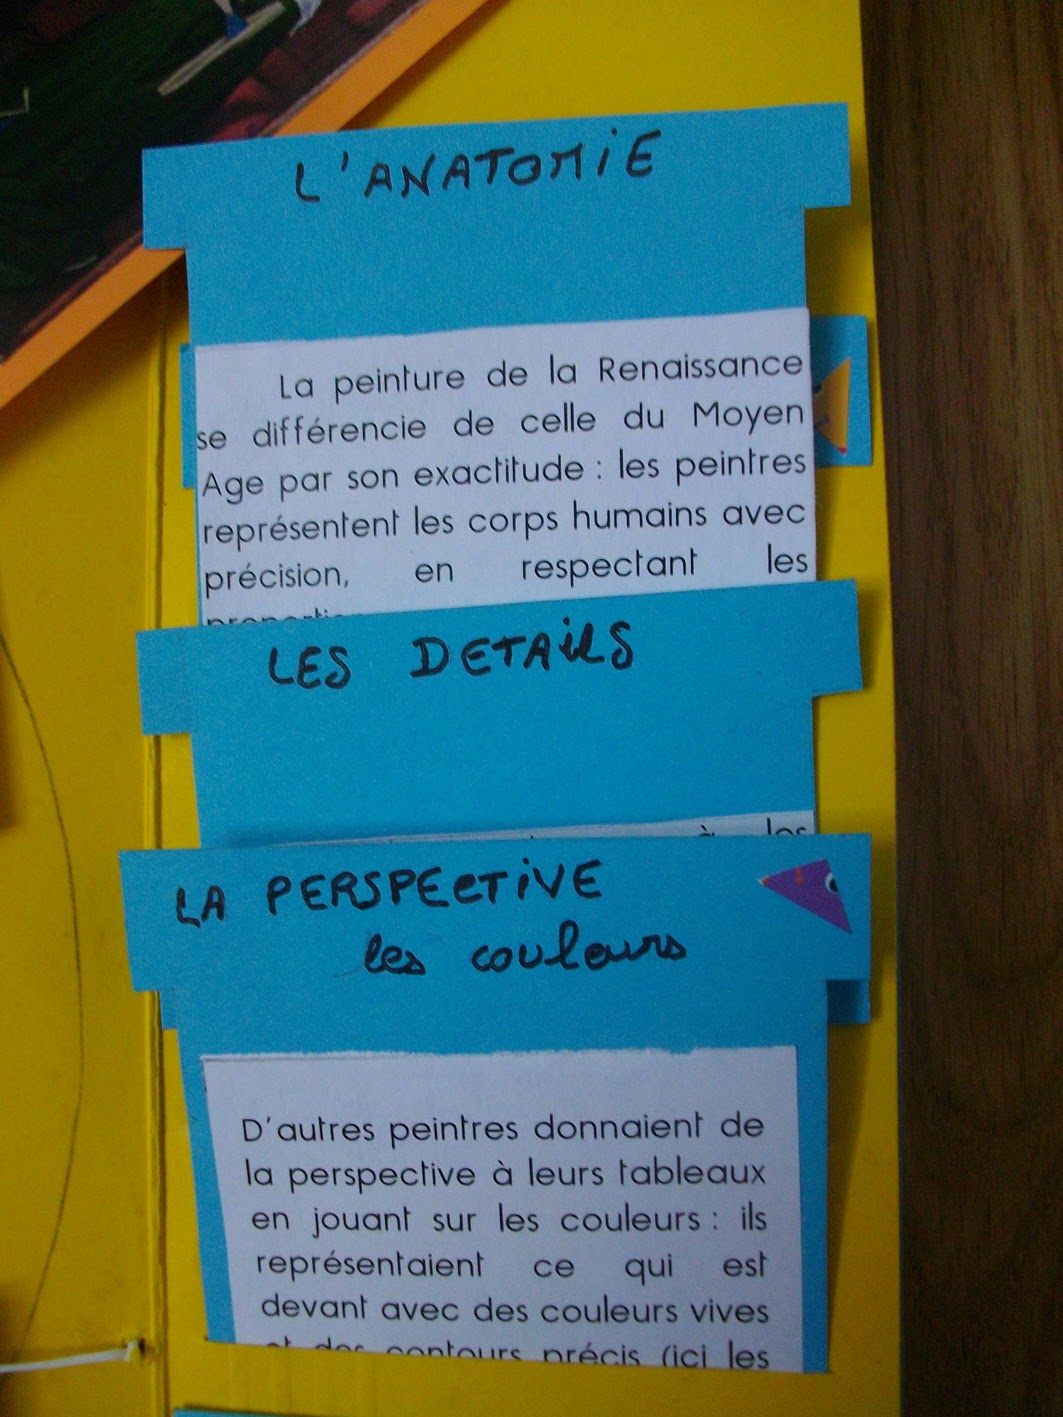 L'ANATOMIE
La peinture de la Renaissance
se différencie de celle du Moyen
Age par son exactitude : les peintres
représentent les corps humains avec
précision, en respectant les
LES DETAILS
à les
LA PERSPECTIVE
les couleurs
D'autres peintres donnaient de
la perspective à leurs tableaux
en jouant sur les couleurs : ils
représentaient ce qui est
devant avec des couleurs vives
et des contours précis (ici les